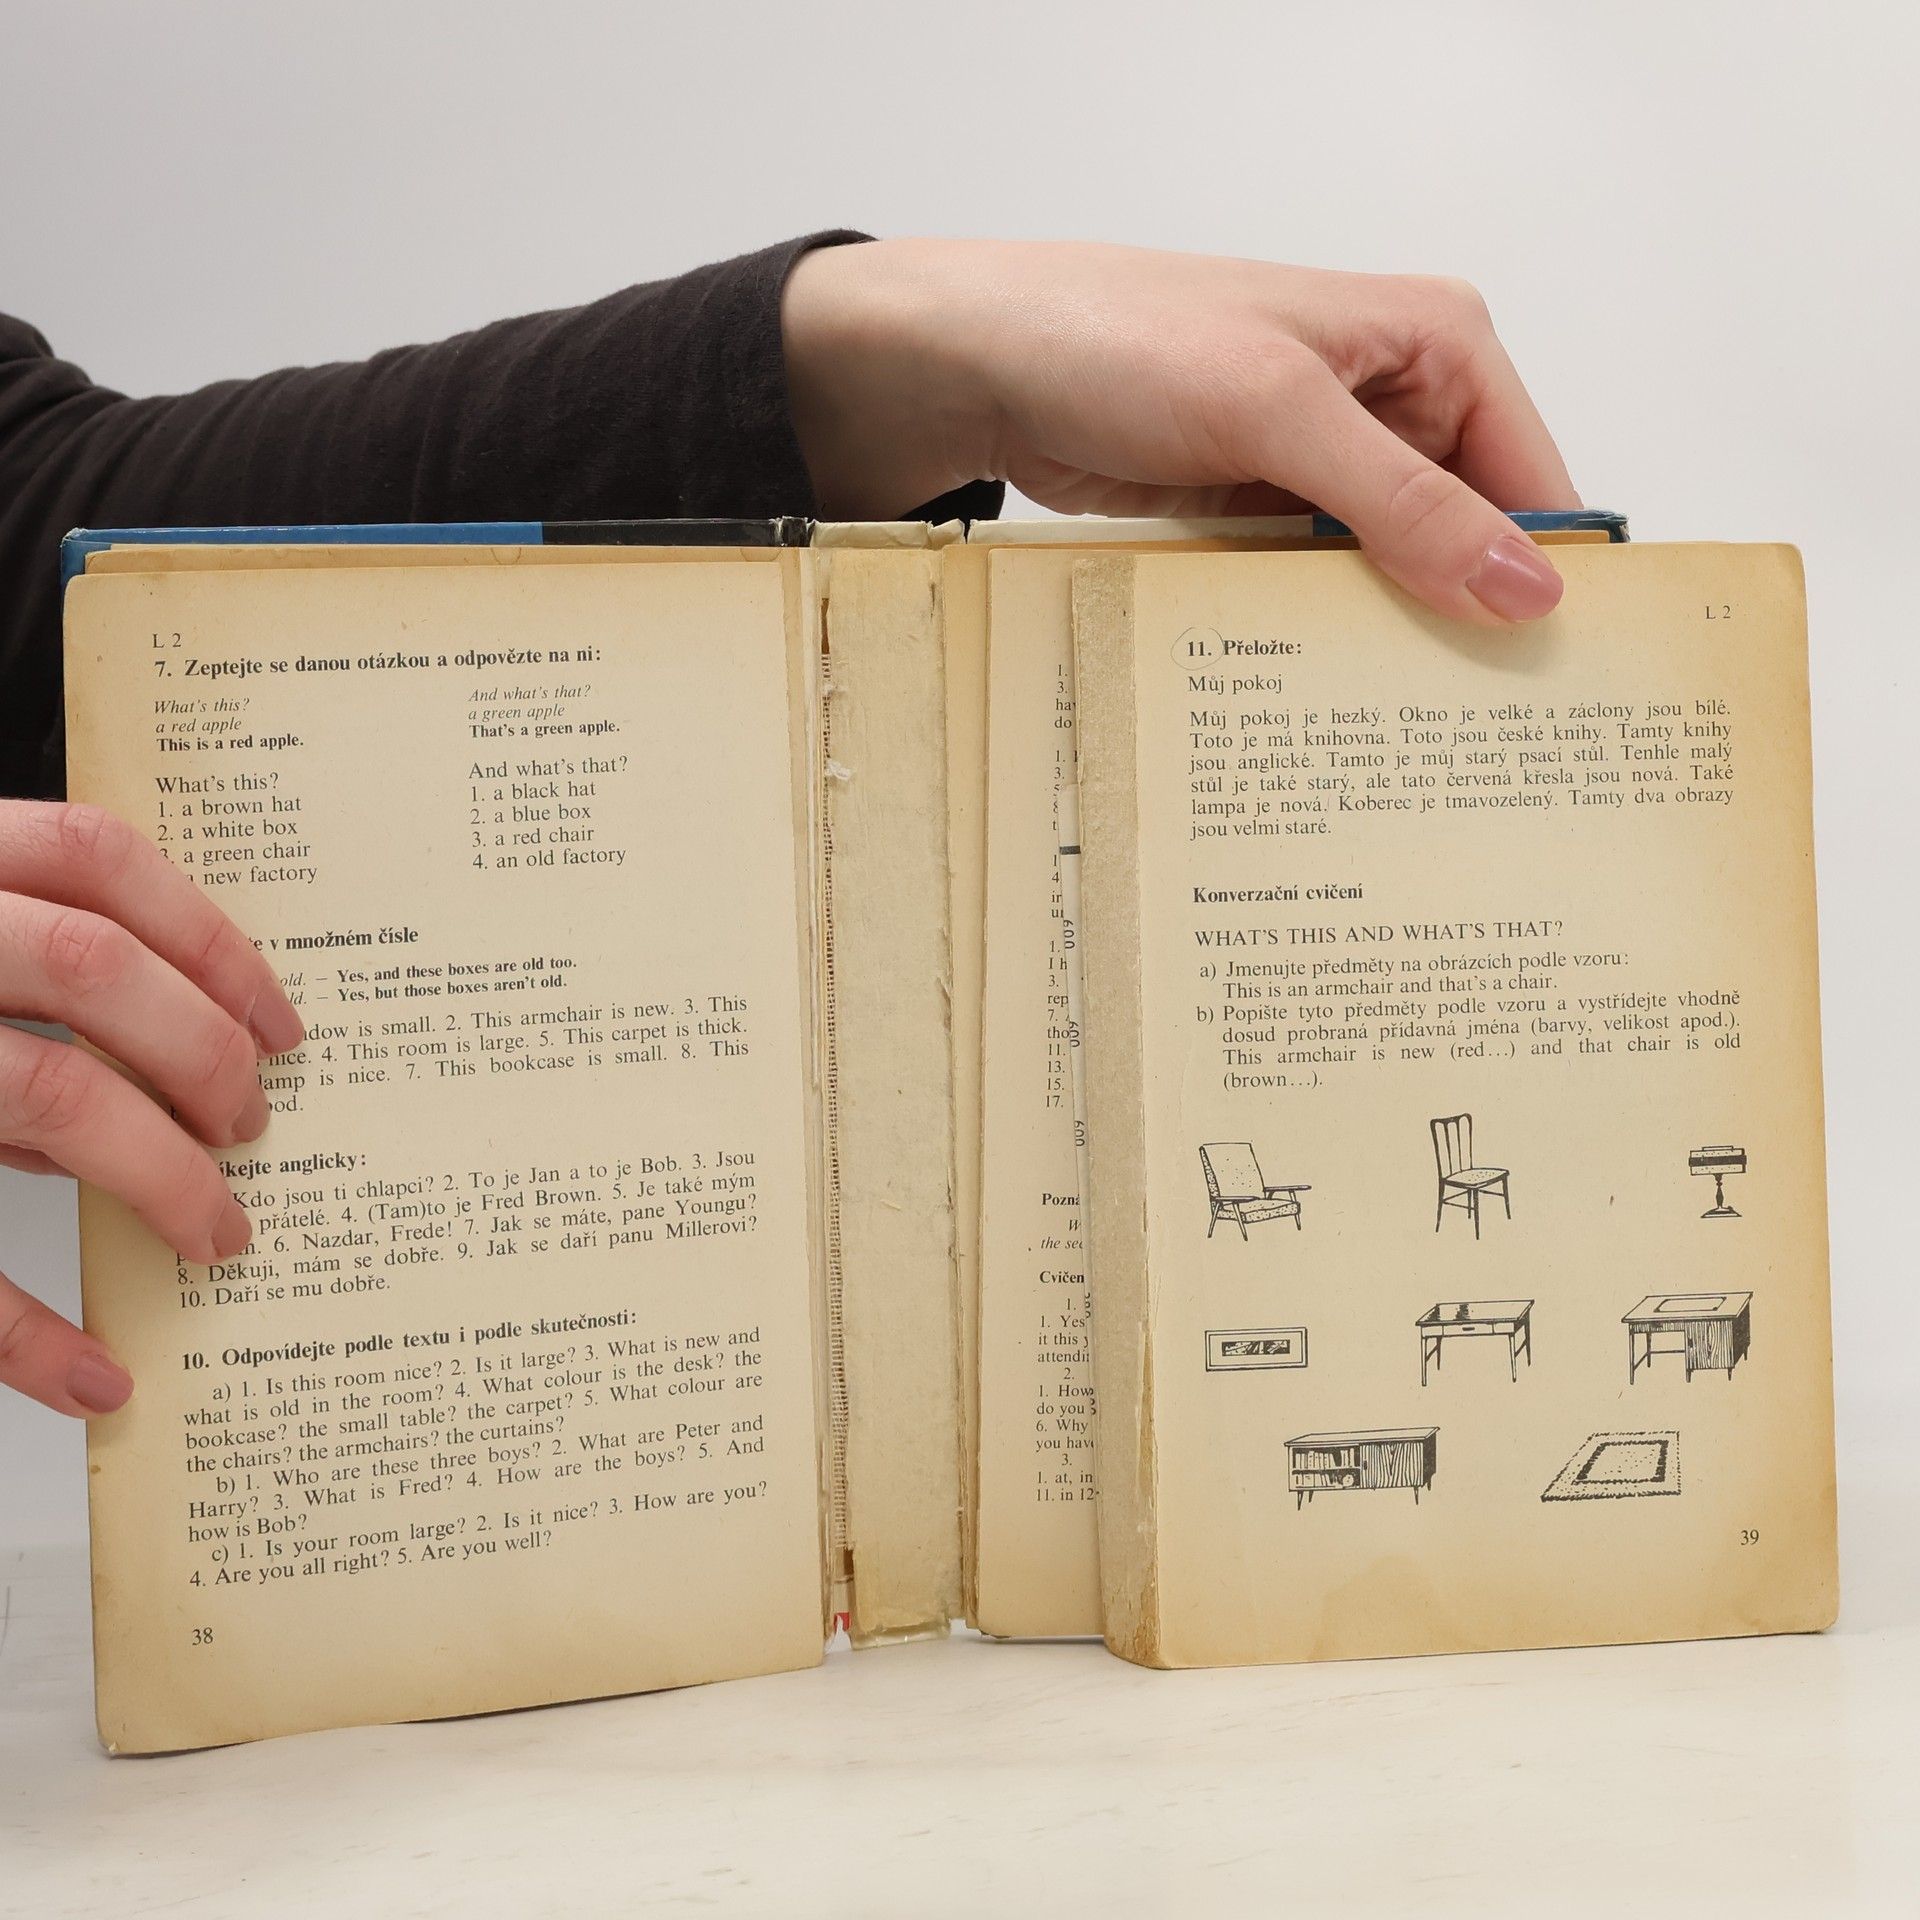 L 2
7. Zeptejte se danou otázkou a odpovězte na ni:
What's this?
a red apple
This is a red apple.
What's this?
1. a brown hat
2. a white box
3. a green chair
new factory
And what's that?
a green apple
That's a green apple.
And what's that?
1. a black hat
2. a blue box
3. a red chair
4. an old factory
v množném čísle
old. – Yes, and these boxes are old too.
– Yes, but those boxes aren't old.
is small. 2. This armchair is new. 3. This
nice. 4. This room is large. 5. This carpet is thick.
lamp is nice. 7. This bookcase is small. 8. This
anglicky:
Kdo jsou ti chlapci? 2. To je Jan a to je Bob. 3. Jsou
přátelé. 4. (Tam)to je Fred Brown. 5. Je také mým
6. Nazdar, Frede! 7. Jak se máte, pane Youngu?
8. Děkuji, mám se dobře. 9. Jak se daří panu Millerovi?
10. Daří se mu dobře.
10. Odpovídejte podle textu i podle skutečnosti:
a) 1. Is this room nice? 2. Is it large? 3. What is new and
what is old in the room? 4. What colour is the desk? the
bookcase? the small table? the carpet? 5. What colour are
the chairs? the armchairs? the curtains?
b) 1. Who are these three boys? 2. What are Peter and
Harry? 3. What is Fred? 4. How are the boys? 5. And
how is Bob?
c) 1. Is your room large? 2. Is it nice? 3. How are you?
4. Are you all right? 5. Are you well?
38
1.
3.
do
1.
3.
1.
I h
3.
rep
7.
tho
11.
13.
15.
17.
the
Cvičen
1.
1. Yes
it this
attendi
2.
1. How
do you
6. Why
you hav
3.
1. at, in
11. in 12
L 2
11. Přeložte:
Můj pokoj
Můj pokoj je hezký. Okno je velké a záclony jsou bílé.
Toto je má knihovna. Toto jsou české knihy. Tamty knihy
jsou anglické. Tamto je můj starý psací stůl. Tenhle malý
stůl je také starý, ale tato červená křesla jsou nová. Také
lampa je nová. Koberec je tmavozelený. Tamty dva obrazy
jsou velmi staré.
Konverzační cvičení
WHAT'S THIS AND WHAT'S THAT?
a) Jmenujte předměty na obrázcích podle vzoru:
This is an armchair and that's a chair.
b) Popište tyto předměty podle vzoru a vystřídejte vhodně
dosud probraná přídavná jména (barvy, velikost apod.).
This armchair is new (red...) and that chair is old
(brown...).
39